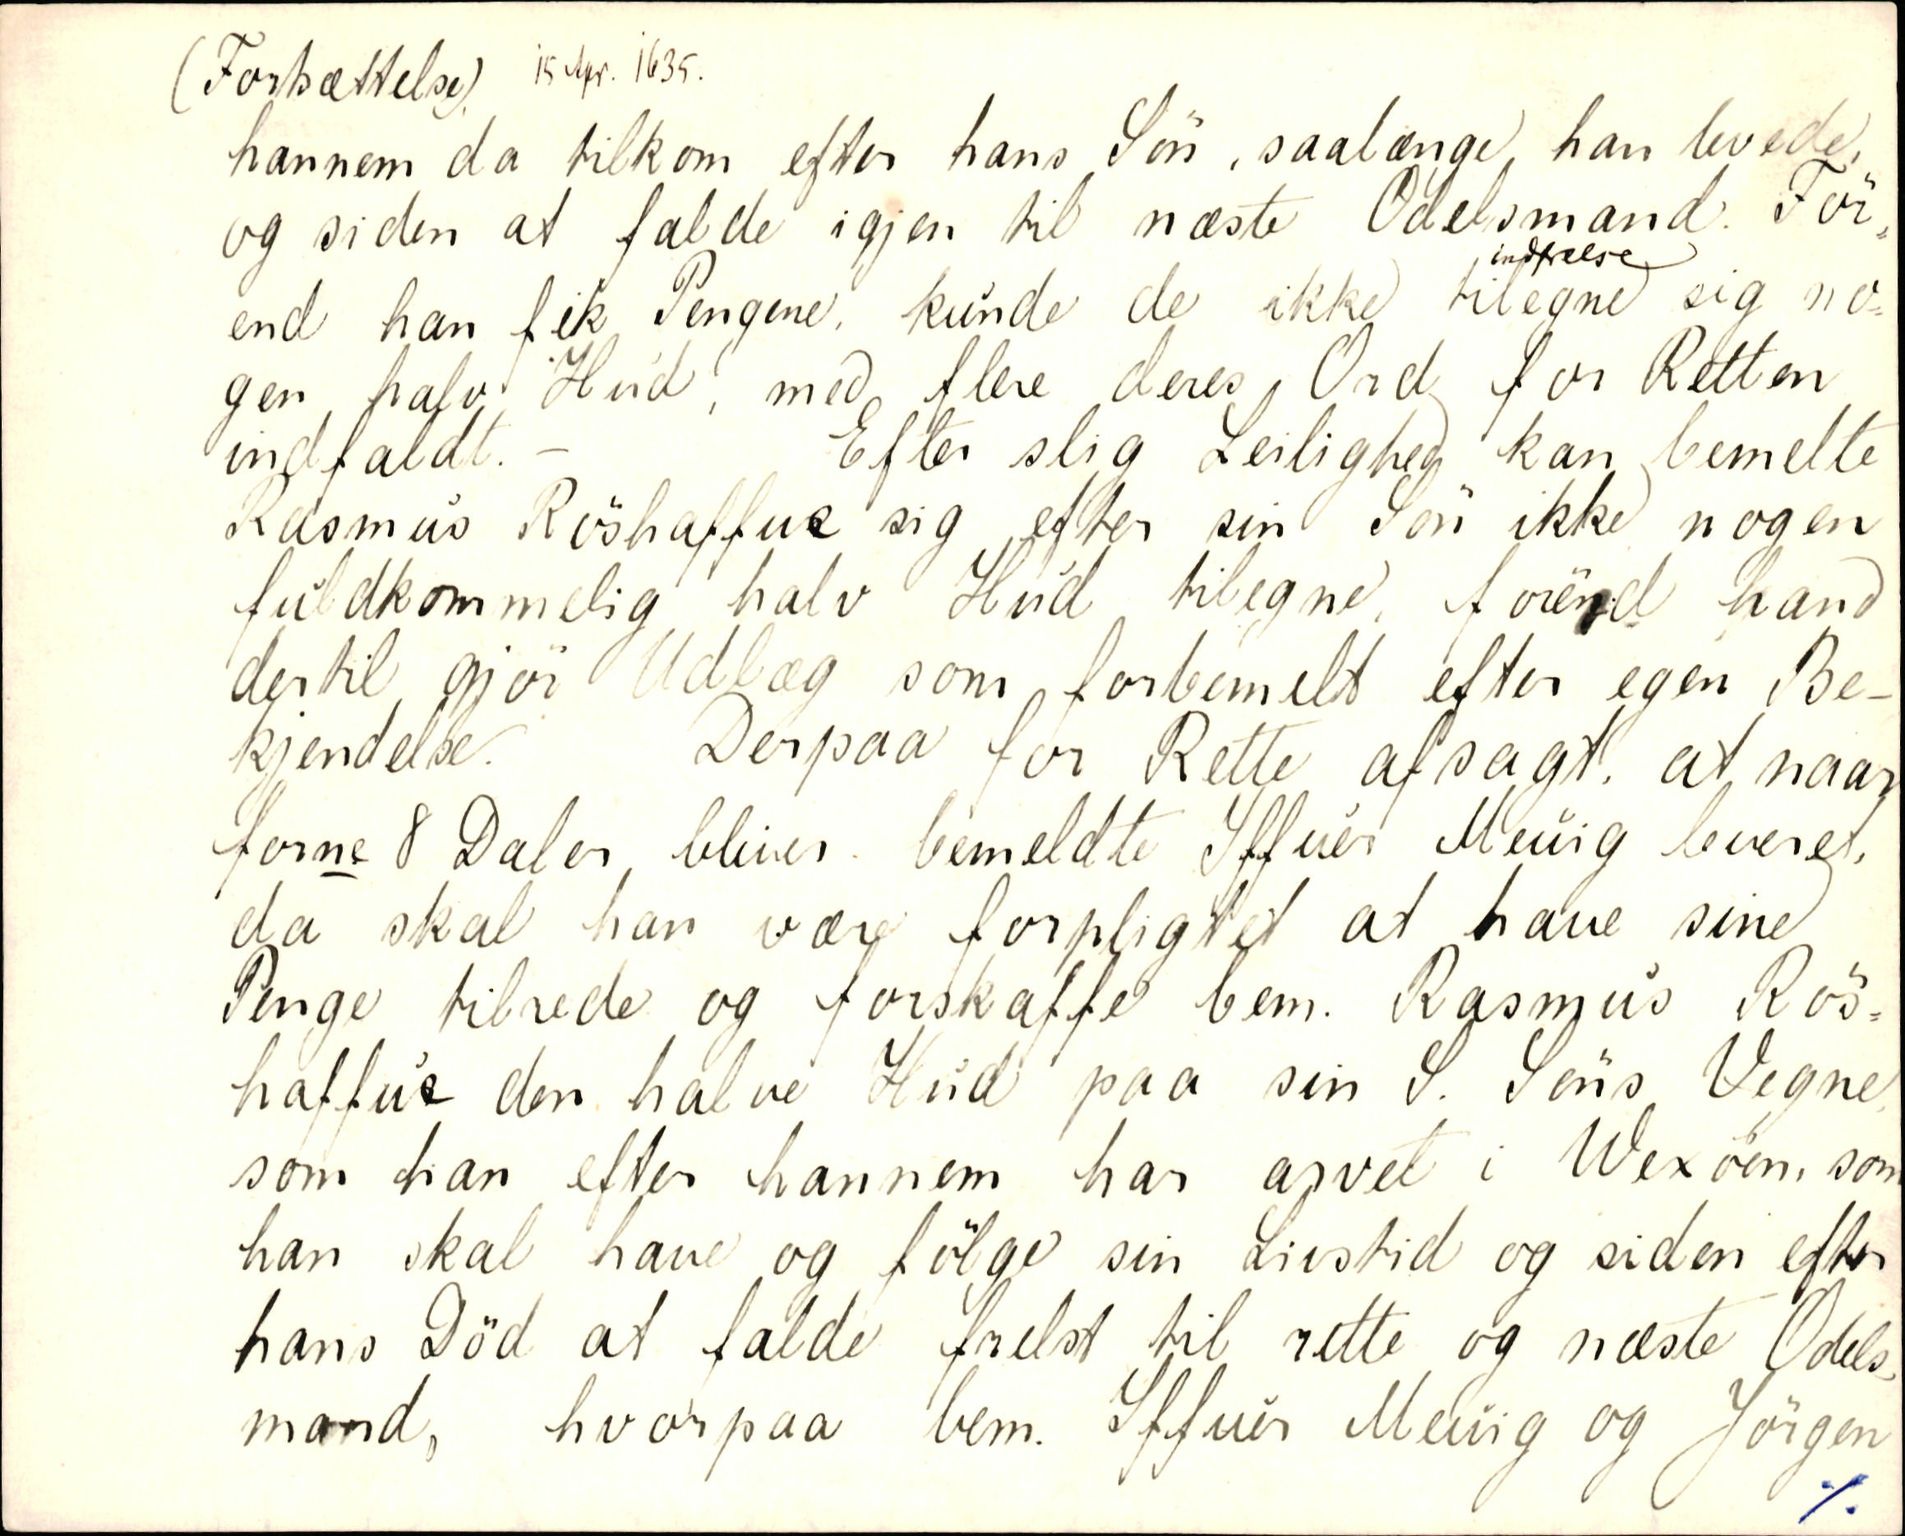 (Fortsættelse). 15 Apr. 1635.
hannem da tilkom efter hans Sön, saalænge han levede,
og siden at falde igjen til næste Odelsmand. För„
indfrelse
end han fik Pengene, kunde de ikke tilegne sig no„
gen halv Hud, med flere deres Ord for Retten
indfaldt. – Efter slig Leilighed kan bemelte
Rasmus Röshaffue sig efter sin Sön ikke nogen
fuldkommelig halv Hud tilegne, förend hand
dertil gjör Udlæg som forbemelt efter egen Be-
kjendelse. Derpaa for Rette afsagt, at naar
forne 8 Daler bliver bemeldte Iffuer Meuig leveret,
da skal han være forpligtet at have sine
Penge tilrede og forskaffe bem. Rasmus Rös„
haffue den halve Hud paa sin S. Söns Vegne,
som han efter hannem har arvet i Wexöen, som
han skal have og fölge sin Livstid og siden efter
hans Död at falde frelst til rette og næste Odels„
mand, hvorpaa bem. Iffuer Meuig og Jörgen
·/.